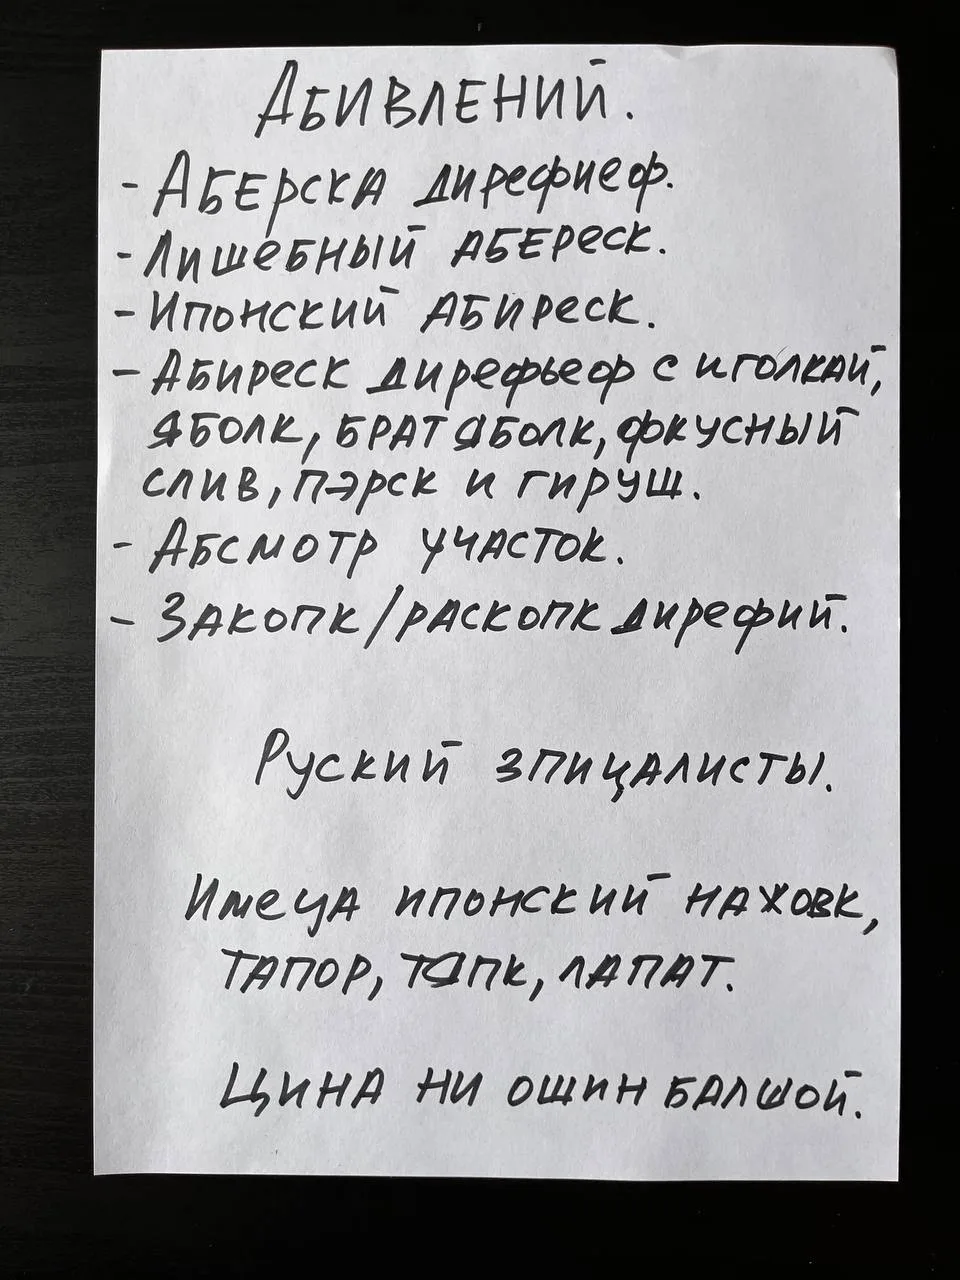 Абивлений.
- Аберска дирефиеф.
- Лишебный абереск.
- Ипонский абиреск.
- Абиреск дирефьеф с иголкай,
яболк, брат яболк, фкусный
слив, пэрск и гируш.
- Абсмотр участок.
- Закопк/раскопк дирефий.
Руский зпицалисты.
Имеца ипонский наховк,
тапор, тяпк, лапат.
Цина ни ошин балшой.